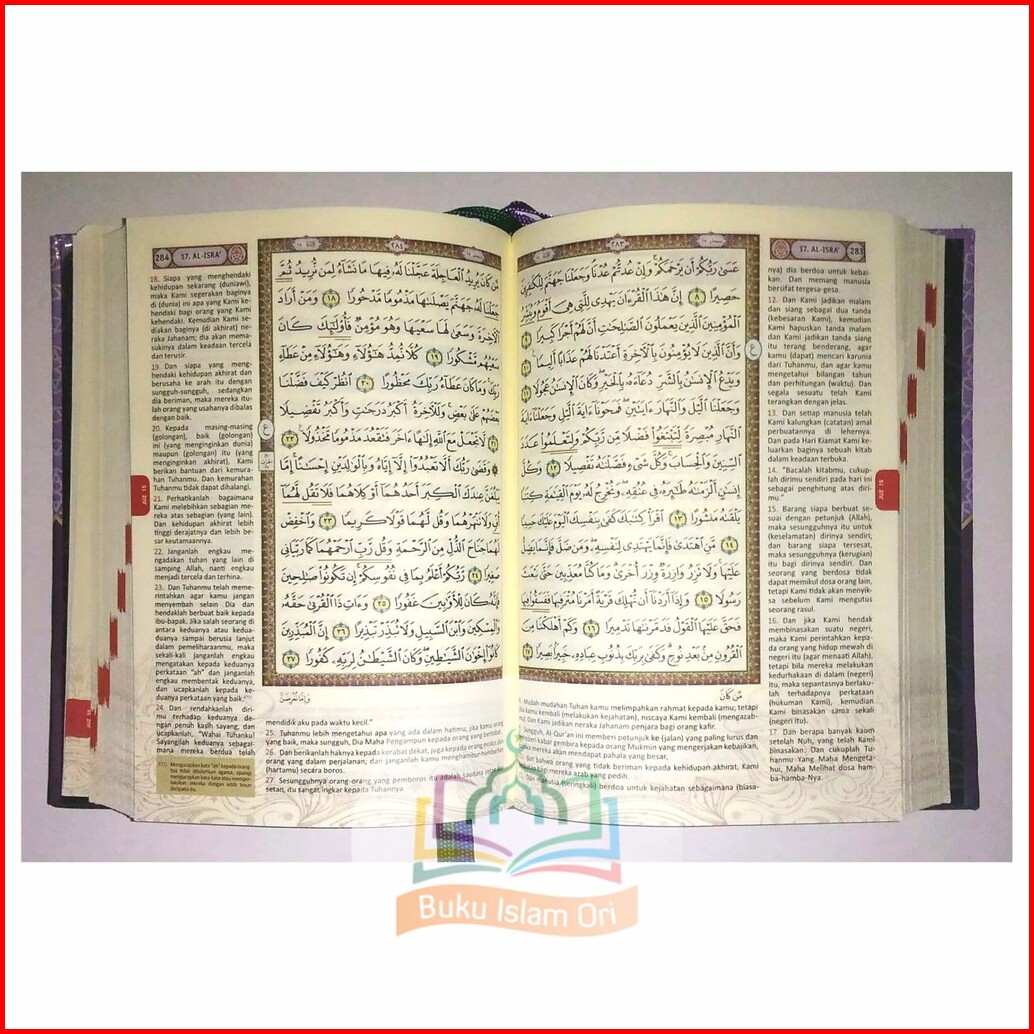 17. AL-ISRA' 283
٢٨٣
عَسَىٰ رَبُّكُمْ أَن يَرْحَمَكُمْ وَإِنْ عُدتُّمْ عُدْنَا وَجَعَلْنَا جَهَنَّمَ لِلْكَٰفِرِينَ
حَصِيرًا ٨ إِنَّ هَٰذَا الْقُرْءَانَ يَهْدِى لِلَّتِى هِىَ أَقْوَمُ وَيُبَشِّرُ
الْمُؤْمِنِينَ الَّذِينَ يَعْمَلُونَ الصَّٰلِحَٰتِ أَنَّ لَهُمْ أَجْرًا كَبِيرًا ٩
وَأَنَّ الَّذِينَ لَا يُؤْمِنُونَ بِالْءَاخِرَةِ أَعْتَدْنَا لَهُمْ عَذَابًا أَلِيمًا ١٠
وَيَدْعُ الْإِنسَٰنُ بِالشَّرِّ دُعَآءَهُۥ بِالْخَيْرِ وَكَانَ الْإِنسَٰنُ عَجُولًا ١١
وَجَعَلْنَا الَّيْلَ وَالنَّهَارَ ءَايَتَيْنِ فَمَحَوْنَآ ءَايَةَ الَّيْلِ وَجَعَلْنَآ ءَايَةَ
النَّهَارِ مُبْصِرَةً لِّتَبْتَغُوا۟ فَضْلًا مِّن رَّبِّكُمْ وَلِتَعْلَمُوا۟ عَدَدَ
السِّنِينَ وَالْحِسَابَ وَكُلَّ شَىْءٍ فَصَّلْنَٰهُ تَفْصِيلًا ١٢ وَكُلَّ
إِنسَٰنٍ أَلْزَمْنَٰهُ طَٰٓئِرَهُۥ فِى عُنُقِهِۦ وَنُخْرِجُ لَهُۥ يَوْمَ الْقِيَٰمَةِ كِتَٰبًا
يَلْقَىٰهُ مَنشُورًا ١٣ اقْرَأْ كِتَٰبَكَ كَفَىٰ بِنَفْسِكَ الْيَوْمَ عَلَيْكَ حَسِيبًا
١٤ مَّنِ اهْتَدَىٰ فَإِنَّمَا يَهْتَدِى لِنَفْسِهِۦ وَمَن ضَلَّ فَإِنَّمَا يَضِلُّ
عَلَيْهَا وَلَا تَزِرُ وَازِرَةٌ وِزْرَ أُخْرَىٰ وَمَا كُنَّا مُعَذِّبِينَ حَتَّىٰ نَبْعَثَ
رَسُولًا ١٥ وَإِذَآ أَرَدْنَآ أَن نُّهْلِكَ قَرْيَةً أَمَرْنَا مُتْرَفِيهَا فَفَسَقُوا۟ فِيهَا
فَحَقَّ عَلَيْهَا الْقَوْلُ فَدَمَّرْنَٰهَا تَدْمِيرًا ١٦ وَكَمْ أَهْلَكْنَا مِنَ
الْقُرُونِ مِنۢ بَعْدِ نُوحٍ وَكَفَىٰ بِرَبِّكَ بِذُنُوبِ عِبَادِهِۦ خَبِيرًۢا بَصِيرًا ١٧
مَّن كَانَ
8. Mudah-mudahan Tuhan kamu melimpahkan rahmat kepada kamu; tetapi
kamu kembali (melakukan kejahatan), niscaya Kami kembali (mengazab-
mu). Dan Kami jadikan neraka Jahanam penjara bagi orang kafir.
Sungguh, Al-Qur'an ini memberi petunjuk ke (jalan) yang paling lurus dan
memberi kabar gembira kepada orang Mukmin yang mengerjakan kebajikan,
bahwa mereka akan mendapat pahala yang besar,
dan bahwa orang yang tidak beriman kepada kehidupan akhirat, Kami
sediakan bagi mereka azab yang pedih.
Dan manusia (seringkali) berdoa untuk kejahatan sebagaimana (biasa-
nya) dia berdoa untuk kebai-
kan. Dan memang manusia
bersifat tergesa-gesa.
12. Dan Kami jadikan malam
dan siang sebagai dua tanda
(kebesaran Kami), kemudian
Kami hapuskan tanda malam
dan Kami jadikan tanda siang
itu terang benderang, agar
kamu (dapat) mencari karunia
dari Tuhanmu, dan agar kamu
mengetahui bilangan tahun
dan perhitungan (waktu). Dan
segala sesuatu telah Kami
terangkan dengan jelas.
13. Dan setiap manusia telah
Kami kalungkan (catatan) amal
perbuatannya di lehernya.
Dan pada Hari Kiamat Kami ke-
luarkan baginya sebuah kitab
dalam keadaan terbuka.
14. "Bacalah kitabmu, cukup-
lah dirimu sendiri pada hari ini
sebagai penghitung atas diri-
mu."
15. Barang siapa berbuat se-
suai dengan petunjuk (Allah),
maka sesungguhnya itu untuk
(keselamatan) dirinya sendiri;
dan barang siapa tersesat,
maka sesungguhnya (kerugian)
itu bagi dirinya sendiri. Dan
seorang yang berdosa tidak
dapat memikul dosa orang lain,
tetapi Kami tidak akan menyik-
sa sebelum Kami mengutus
seorang rasul.
16. Dan jika Kami hendak
membinasakan suatu negeri,
maka Kami perintahkan kepa-
da orang yang hidup mewah di
negeri itu (agar menaati Allah),
tetapi bila mereka melakukan
kedurhakaan di dalam (negeri)
itu, maka sepantasnya berlaku-
lah terhadapnya perkataan
(hukuman Kami), kemudian
Kami binasakan sama sekali
(negeri itu).
17. Dan berapa banyak kaum
setelah Nuh, yang telah Kami
binasakan. Dan cukuplah Tu-
hanmu Yang Maha Mengeta-
hui, Maha Melihat dosa ham-
ba-hamba-Nya.
JUZ 15
284 17. AL-ISRA'
٢٨٤
مَّن كَانَ يُرِيدُ الْعَاجِلَةَ عَجَّلْنَا لَهُۥ فِيهَا مَا نَشَآءُ لِمَن نُّرِيدُ ثُمَّ
جَعَلْنَا لَهُۥ جَهَنَّمَ يَصْلَىٰهَا مَذْمُومًا مَّدْحُورًا ١٨ وَمَنْ أَرَادَ
الْءَاخِرَةَ وَسَعَىٰ لَهَا سَعْيَهَا وَهُوَ مُؤْمِنٌ فَأُو۟لَٰٓئِكَ كَانَ
سَعْيُهُم مَّشْكُورًا ١٩ كُلًّا نُّمِدُّ هَٰٓؤُلَآءِ وَهَٰٓؤُلَآءِ مِنْ عَطَآءِ
رَبِّكَ وَمَا كَانَ عَطَآءُ رَبِّكَ مَحْظُورًا ٢٠ انظُرْ كَيْفَ فَضَّلْنَا
بَعْضَهُمْ عَلَىٰ بَعْضٍ وَلَلْءَاخِرَةُ أَكْبَرُ دَرَجَٰتٍ وَأَكْبَرُ تَفْضِيلًا
٢١ لَّا تَجْعَلْ مَعَ اللَّهِ إِلَٰهًا ءَاخَرَ فَتَقْعُدَ مَذْمُومًا مَّخْذُولًا ٢٢
وَقَضَىٰ رَبُّكَ أَلَّا تَعْبُدُوٓا۟ إِلَّآ إِيَّاهُ وَبِالْوَٰلِدَيْنِ إِحْسَٰنًا إِمَّا
يَبْلُغَنَّ عِندَكَ الْكِبَرَ أَحَدُهُمَآ أَوْ كِلَاهُمَا فَلَا تَقُل لَّهُمَآ
أُفٍّ وَلَا تَنْهَرْهُمَا وَقُل لَّهُمَا قَوْلًا كَرِيمًا ٢٣ وَاخْفِضْ
لَهُمَا جَنَاحَ الذُّلِّ مِنَ الرَّحْمَةِ وَقُل رَّبِّ ارْحَمْهُمَا كَمَا رَبَّيَانِى
صَغِيرًا ٢٤ رَّبُّكُمْ أَعْلَمُ بِمَا فِى نُفُوسِكُمْ إِن تَكُونُوا۟ صَٰلِحِينَ
فَإِنَّهُۥ كَانَ لِلْأَوَّٰبِينَ غَفُورًا ٢٥ وَءَاتِ ذَا الْقُرْبَىٰ حَقَّهُۥ
وَالْمِسْكِينَ وَابْنَ السَّبِيلِ وَلَا تُبَذِّرْ تَبْذِيرًا ٢٦ إِنَّ الْمُبَذِّرِينَ
كَانُوٓا۟ إِخْوَٰنَ الشَّيَٰطِينِ وَكَانَ الشَّيْطَٰنُ لِرَبِّهِۦ كَفُورًا ٢٧
وَإِمَّا تُعْرِضَنَّ
18. Siapa yang menghendaki
kehidupan sekarang (duniawi),
maka Kami segerakan baginya
di (dunia) ini apa yang Kami ke-
hendaki bagi orang yang Kami
kehendaki. Kemudian Kami se-
diakan baginya (di akhirat) ne-
raka Jahanam; dia akan mema-
sukinya dalam keadaan tercela
dan terusir.
19. Dan siapa yang meng-
hendaki kehidupan akhirat dan
berusaha ke arah itu dengan
sungguh-sungguh, sedangkan
dia beriman, maka mereka itu-
lah orang yang usahanya dibalas
dengan baik.
20. Kepada masing-masing
(golongan), baik (golongan)
ini (yang menginginkan dunia)
maupun (golongan) itu (yang
menginginkan akhirat), Kami
berikan bantuan dari kemura-
han Tuhanmu. Dan kemurahan
Tuhanmu tidak dapat dihalangi.
21. Perhatikanlah bagaimana
Kami melebihkan sebagian me-
reka atas sebagian (yang lain).
Dan kehidupan akhirat lebih
tinggi derajatnya dan lebih be-
sar keutamaannya.
22. Janganlah engkau me-
ngadakan tuhan yang lain di
samping Allah, nanti engkau
menjadi tercela dan terhina.
23. Dan Tuhanmu telah meme-
rintahkan agar kamu jangan
menyembah selain Dia dan
hendaklah berbuat baik kepada
ibu-bapak. Jika salah seorang di
antara keduanya atau kedua-
duanya sampai berusia lanjut
dalam pemeliharaanmu, maka
sekali-kali janganlah engkau
mengatakan kepada keduanya
perkataan "ah" dan janganlah
engkau membentak keduanya,
dan ucapkanlah kepada ke-
duanya perkataan yang baik.
24. Dan rendahkanlah diri-
mu terhadap keduanya de-
ngan penuh kasih sayang, dan
ucapkanlah, "Wahai Tuhanku!
Sayangilah keduanya sebagai-
mana mereka berdua telah
mendidik aku pada waktu kecil."
25. Tuhanmu lebih mengetahui apa yang ada dalam hatimu; jika kamu orang
yang baik, maka sungguh, Dia Maha Pengampun kepada orang yang bertobat.
26. Dan berikanlah haknya kepada kerabat dekat, juga kepada orang miskin dan
orang yang dalam perjalanan; dan janganlah kamu menghambur-hamburkan
(hartamu) secara boros.
27. Sesungguhnya orang-orang yang pemboros itu adalah saudara setan dan
setan, itu sangat ingkar kepada Tuhannya
JUZ 15
Buku Islam Ori